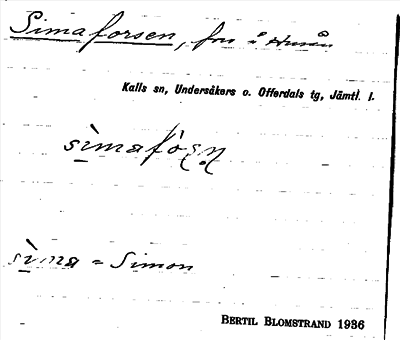 Simaforsen, fors i
Kalls sn, Undersåkers o. Offerdals tg, Jämtl. l.
sìmafọ̀ṣṇ
sìma = Simon
BERTIL BLOMSTRAND 1936